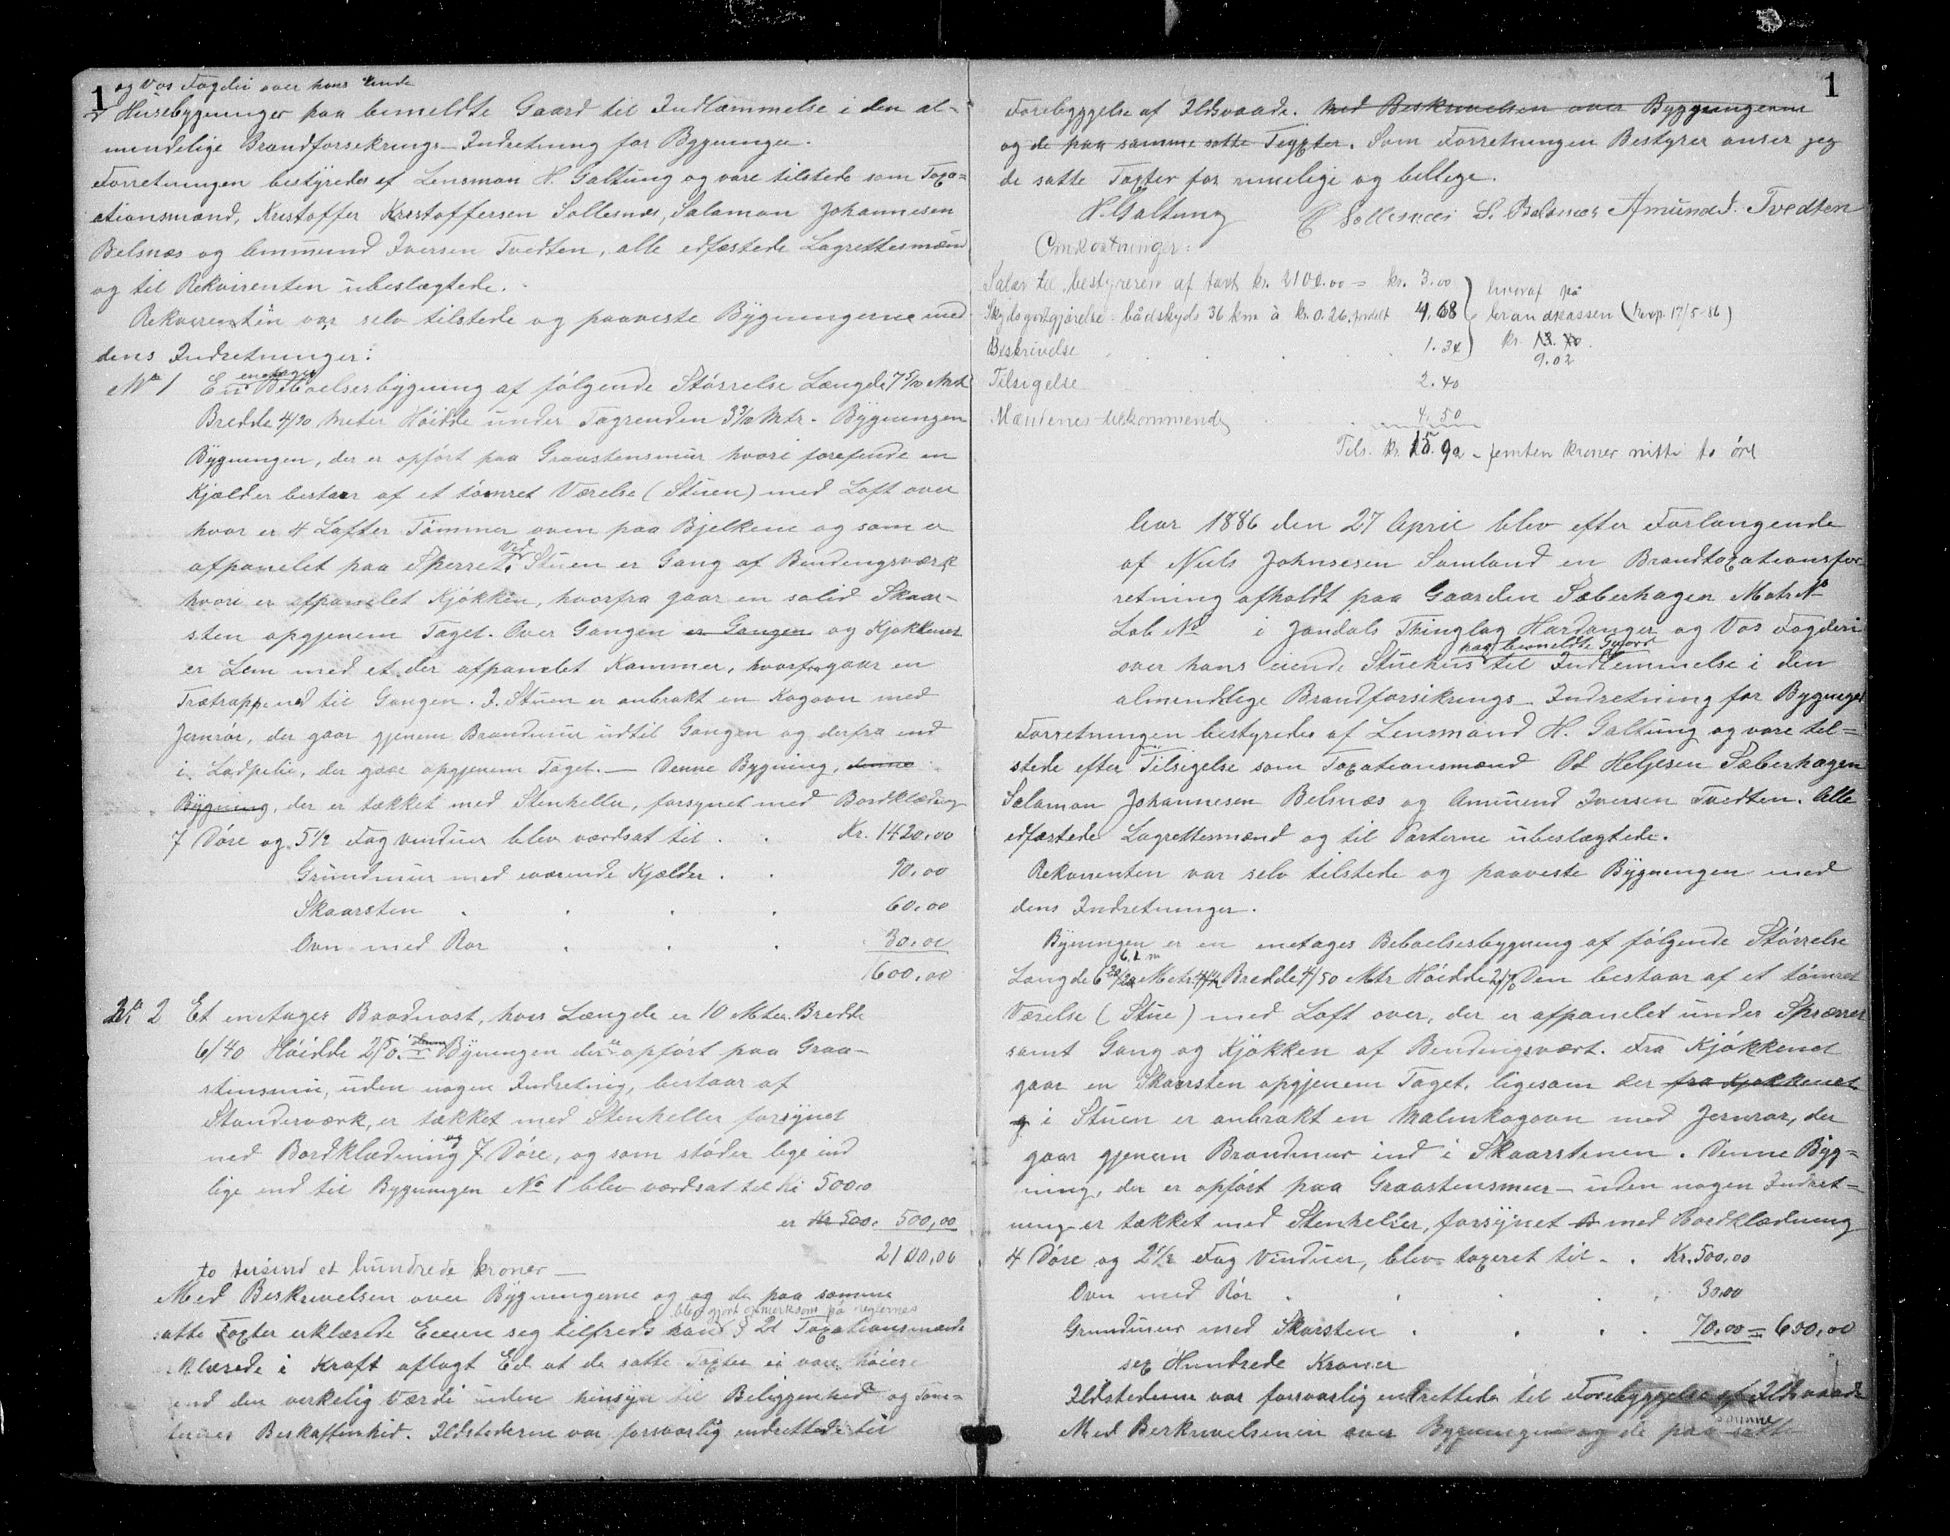 1
og Vos Fogderi over hans eiende
Husebygninger paa bemeldte Gaard til Indlæmmelse i den al-
mindelige Brandforsikrings-Indretning for Bygninger.
Forretningen bestyredes af Lensman H. Galtung og vare tilstede som Taxa-
ationsmænd, Kristoffer Kristoffersen Sollesnæs, Salamon Johannesen
Belsnæs og Ammund Iversen Tvedten, alle edfæstede Lagrettesmænd
og til Rekvirenten ubeslægtede.
Rekvirenten var selv tilstede og paaviste Bygningerne med
dens Indretninger:
No 1 En enetages Beboelsesbygning af følgende Størrelse Længde 7 5/10 Mtr
Bredde 4/90 Meter Høidde under Tagrenden 3 3/10 Mtr. Bygningen
Bygningen, der er opført paa Graastensmur hvori forefinde en
Kjælder bestaar af et tømret Værelse (Stuen) med Loft over
hvor er 4 Lafter Tømmer oven paa Bjelkene og som er
afpanelet paa Sperret. Ved Stuen er Gang af Bindingsværk
hvori er afpanelet Kjøkken, hvorfra gaar en solid Skaar-
sten opgjenem Taget. Over Gangen er Gangen og Kjøkkenet
er Lem med et der afpanelet Kammer, hvorfra gaar en
Trætrappe ned til Gangen. I Stuen er anbrakt en Kogovn med
Jernrør, der gaar gjenem Brandmur udtil Gangen og derfra ind
i Ladpibe, der gaar opgjenem Taget. — Denne Bygning, denne
Bygning, der er tækket med Stenheller, forsynet med Bordklædning
7 Døre og 5 1/2 Fag vinduer blev værdsat til . . Kr. 1420,00
Grundmur med værende Kjælder . . 90,00
Skaarsten . . . . 60,00
Ovn med Rør . . . 30,00
1600,00
No 2 Et enetages Baadnøst, hvis Længde er 10 Meter Bredde
6/40 Høidde 2/50. denne Bygningen der er opført paa Graa-
stensmur, uden nogen Indretnig, bestaar af
Standerværk, er tækket med Stenheller forsynet
med Bordklædning og 7 Døre, og som støder lige ind
lige ind til Bygningen No 1 blev værdsat til Kr 500,0
er Kr 500. 500,00
2100,00
to tusind et hundrede kroner —
Med Beskrivelsen over Bygningerne og og de paa samme
blev gjort opmerksom på reglernes
satte Taxter erklærede Eieren seg tilfreds hans § 21 Taxationsmænde
erklærede i Kraft aflagt Ed at de satte Taxter ei vare høiere
end den virkelig Værdi uden hensyn til Beliggenhed og Tom-
ternes Beskaffenhed. Ildstederne var forsvarlig indrettede til
1
Forebyggelse af Ildsvaade. Med Beskrivelsen over Byggningerne
og de paa samme satte Taxter. Som Forretningen Bestyrer anser jeg
de satte Taxter for rimelige og billege.
H. Galtung C Sollesnæs S. Belsnæs Amund I. Tvedten
Omkostninger:
Salær til bestyreren af taxt kr. 2100.00 = kr. 3.00
Skydsgodtgjørelse: bådskyds 36 km à kr. 0.26, fordelt 4.68
Beskrivelse . . . . 1.34
hvoraf på
brandkassen (kvp. 17/5-86)
kr. 13.70
9.02
Tilsigelse 2.40
Mændenes tilkommende 4.50
Tils. kr. 15.92 - femten kroner nitti to øre
Aar 1886 den 27 April blev efter Forlangende
af Niels Johnsesen Samland en Brandtaxationsfor-
retning afholdt paa Gaarden Sæberhagen Matr No
Løb No i Jondals Thinglag Hardanger og Vos Fogderi
over hans eiende Stuehus paa bemeldte Gaard til Indlemmelse i den
almendelige Brandforsikrings-Indretning for Bygninger
Forretningen bestyredes af Lensmand H. Galtung og vare til-
stede efter Tilsigelse som Taxationsmænd Od Heljesen Sæberhagen
Salamon Johannesen Belsnæs og Amund Iversen Tvedten. Alle
edfæstede Lagrettesmænd og til Parterne ubeslægtede.
Rekvirenten var selv tilstede og paaviste Bygningen med
dens Indretninger.
Bygningen er en enetages Beboelsesbygning af følgende Størrelse
Længde 6 20/ Metr. Bredde 4/50 Mtr Høidde 2/70 Den bestaar af et tømret
Værelse (Stue) med Loft over, der er afpanelet under Sperrer
samt Gang og Kjøkken af Bindingsvært. Fra Kjøkkenet
gaar en Skaarsten opgjenem Taget, ligesom der fra Kjøkkenet
og i Stuen er anbrakt en Malmkogovn med Jernrør, der
gaar gjenem Brandmur ind i Skaarstenen. Denne Byg-
ning, der er opført paa Graastensmur - uden nogen Indret-
ning er tækket med Stenheller, forsynet med Bordklædning
4 Døre og 2 1/2 Fag Vinduer, blev taxeret til . . Kr. 500,00
Ovn med Rør . . . . 30,00
Grundmur med Skorsten . . . . 70,00 = 600,00
sex Hundrede Kroner
Ildstederne var forsvarlig endrettede til Forebyggelse af Ildsvaade
Med Berkrivelsenin over Bygningen og de paa samme satte